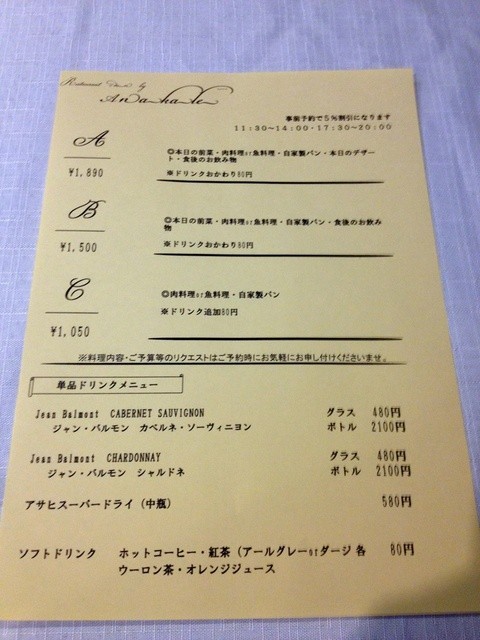 Restaurant
by
事前予約で5％割引になります
11:30～14:00・17:30～20:00
A
¥1,890
◎本日の前菜・肉料理or魚料理・自家製パン・本日のデザー
ト・食後のお飲み物
※ドリンクおかわり80円
B
¥1,500
◎本日の前菜・肉料理or魚料理・自家製パン・食後のお飲み
物
※ドリンクおかわり80円
C
¥1,050
◎肉料理or魚料理・自家製パン
※ドリンク追加80円
※料理内容・ご予算等のリクエストはご予約時にお気軽にお申し付けくださいませ。
単品ドリンクメニュー
Jean Balmont CABERNET SAUVIGNON グラス 480円
ジャン・バルモン カベルネ・ソーヴィニヨン ボトル 2100円
Jean Balmont CHARDONNAY グラス 480円
ジャン・バルモン シャルドネ ボトル 2100円
アサヒスーパードライ（中瓶） 580円
ソフトドリンク ホットコーヒー・紅茶（アールグレーorダージ 各 80円
ウーロン茶・オレンジジュース